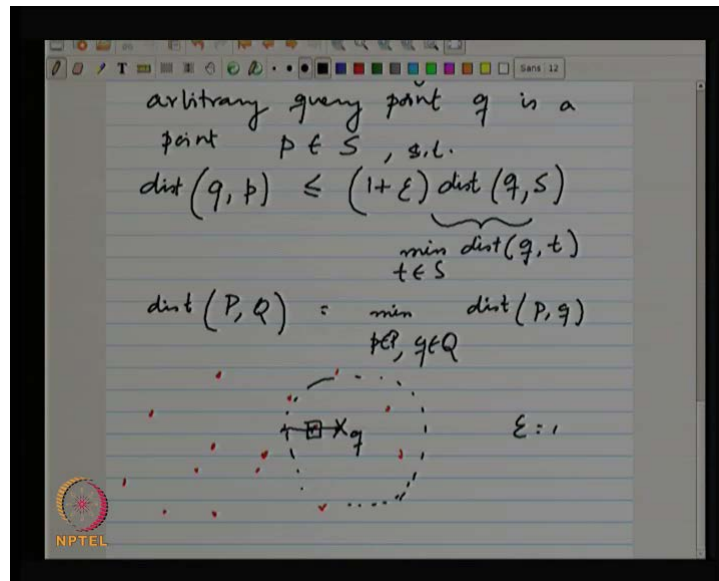 T
Sans 12
arbitrary query point q is a
point p ∈ S , s.t.
dist (q, p) ≤ (1+ ε) dist (q, S)
min dist (q, t)
t ∈ S
dist (P, Q) = min dist (p, q)
p∈P, q∈Q
X q
ε =
NPTEL